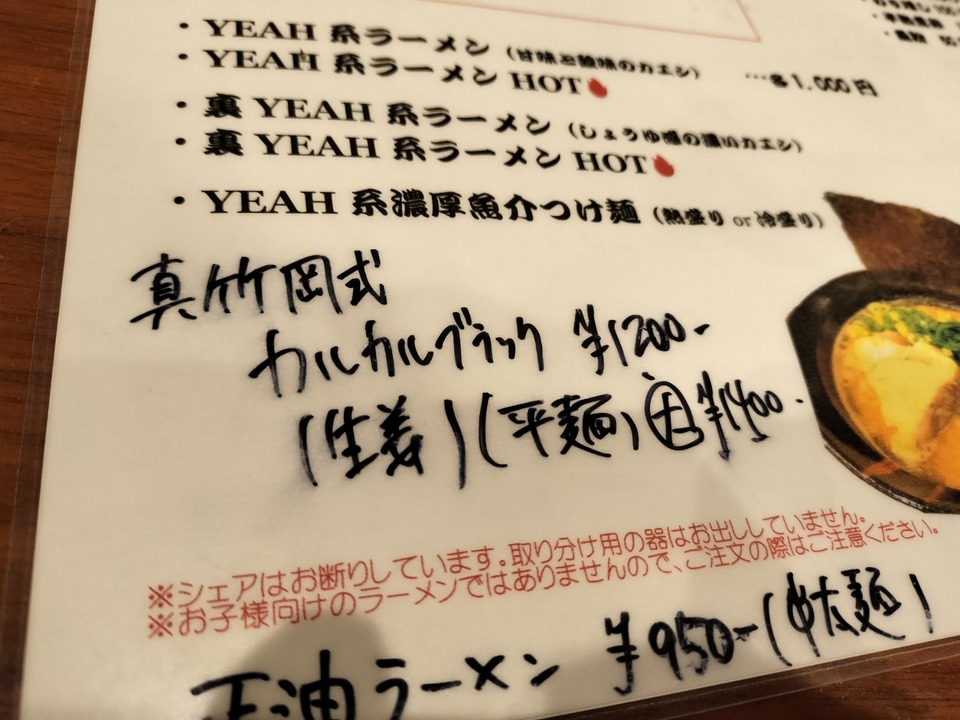 ・YEAH 系ラーメン（甘味と酸味のカエシ）
・YEAH 系ラーメン HOT
…各1,000円
・裏 YEAH 系ラーメン（しょうゆ感の濃いカエシ）
・裏 YEAH 系ラーメン HOT
・YEAH 系濃厚魚介つけ麺（熱盛り or 冷盛り）
真竹岡式
カルカルブラック ¥1200-
(生姜)(平麺) 大 ¥1400-
※シェアはお断りしています。取り分け用の器はお出ししていません。
※お子様向けのラーメンではありませんので、ご注文の際はご注意ください。
正油ラーメン ¥950-(中太麺)